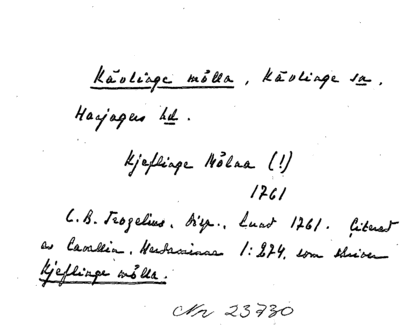 Kävlinge mölla, Kävlinge sn,
Harjagers hd.
Kjeflinge Mölna (!)
1761
C. B. Trozelius, Disp., Lund 1761. Citerad
av Cavallin, Herdaminne 1:274, som skriver
Kjeflinge mölla.
Nr 23730